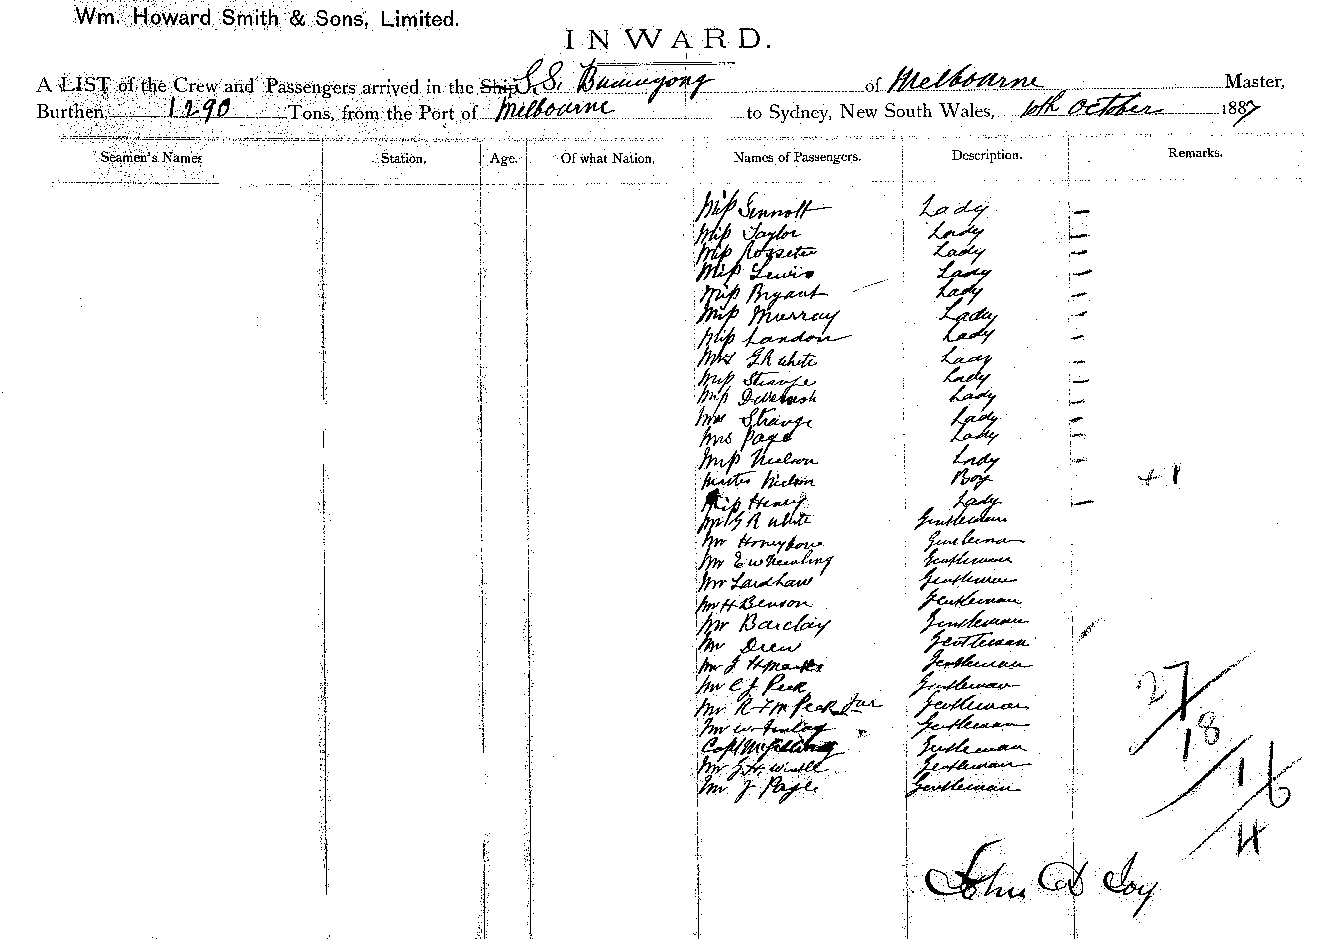 Wm. Howard Smith & Sons, Limited.
INWARD.
A LIST of the Crew and Passengers arrived in the Ship S.S. Buninyong of Melbourne Master,
Burthen 1290 Tons, from the Port of Melbourne to Sydney, New South Wales, 10th October 1887
Seamen's Names Station. Age. Of what Nation. Names of Passengers. Description. Remarks.
Miss Sennott Lady —
Miss Taylor Lady —
Miss Lady —
Miss Lewis Lady —
Miss Bryant Lady —
Miss Murray Lady —
Miss Landon Lady —
Mrs G R White Lady —
Miss Strange Lady —
Miss Lady —
Mrs Strange Lady —
Mrs Page Lady —
Miss Nielson Lady —
Master Nielson Boy + 1
Miss Henry Lady —
Mr G R White Gentleman
Mr Honeybone Gentleman
Mr E W Gentleman
Mr Gentleman
Mr H Benson Gentleman
Mr Barclay Gentleman
Mr Drew Gentleman
Mr J H Gentleman
Mr C J Peck Gentleman
Mr R T M Peck Jnr Gentleman
Mr W Finlay Gentleman
Capt Gentleman
Mr J H Gentleman
Mr J Page Gentleman
27/18/16/4
John D Joy